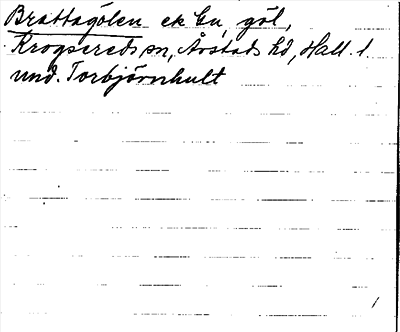 Brattagölen ek bn, göl,
Krogsereds sn, Årstads hd, Hall. l.
und. Torbjörnhult